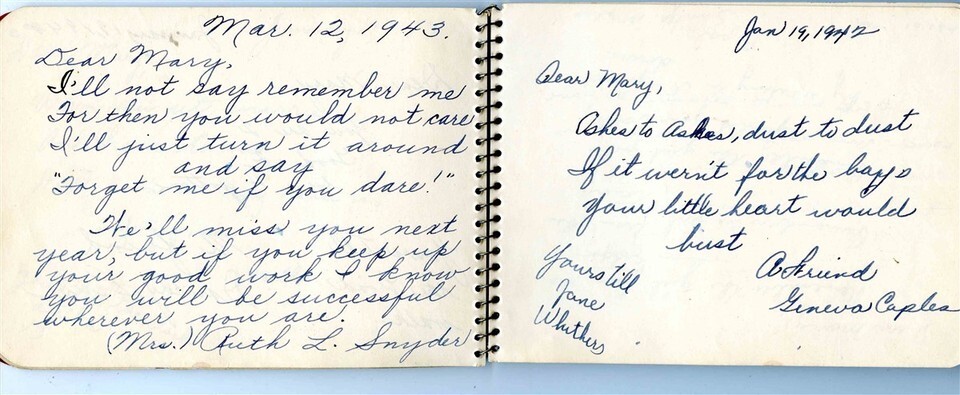 Mar. 12, 1943.
Dear Mary,
I'll not say remember me
For then you would not care
I'll just turn it around
and say
"Forget me if you dare!"
We'll miss you next
year, but if you keep up
your good work I know
you will be successful
wherever you are.
(Mrs.) Ruth L. Snyder
Jan 19, 1942
Dear Mary,
Ashes to Ashes, dust to dust
If it wern't for the boys
Your little heart would
bust
A Friend
Geneva Caples
Yours till
Jane
Whithers